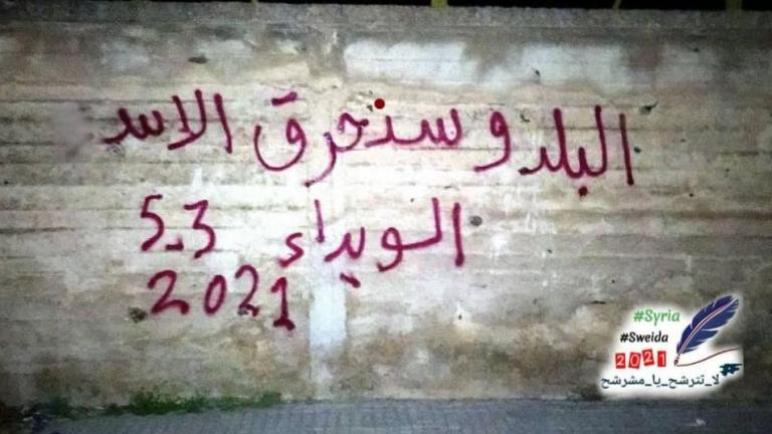 البلد وسنحرق الاسد
السويداء 5.3
2021
#Syria
#Sweida
2021
#لا_تترشح_يا_مشرشح